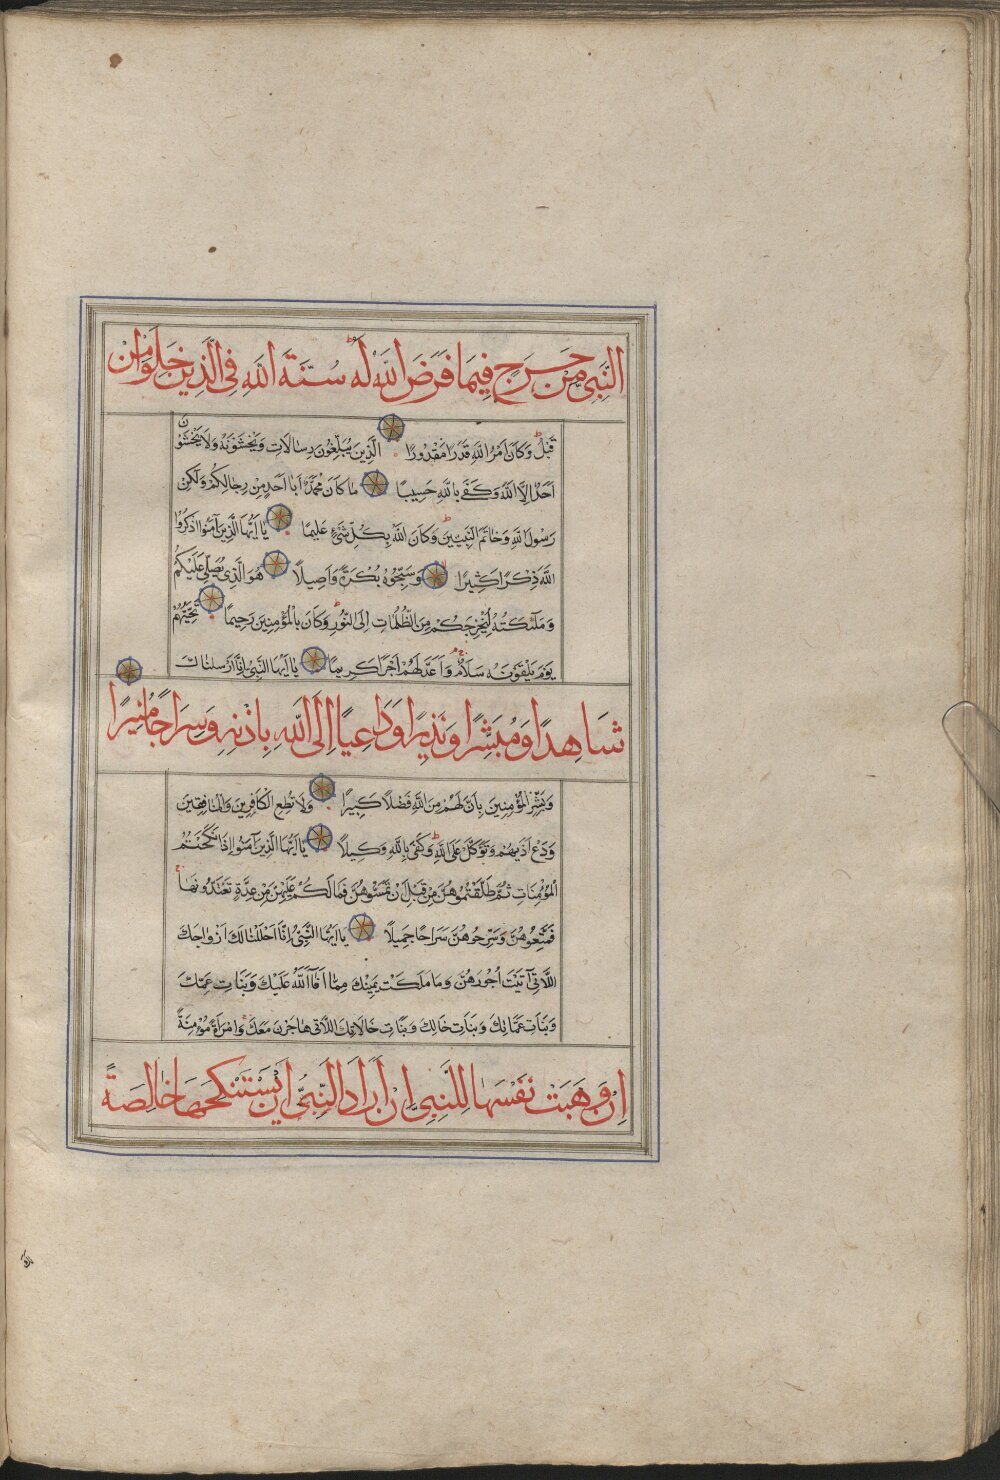 النَّبِيِّ مِنْ حَرَجٍ فِيمَا فَرَضَ اللَّهُ لَهُ سُنَّةَ اللَّهِ فِي الَّذِينَ خَلَوْا مِنْ
قَبْلُ وَكَانَ أَمْرُ اللَّهِ قَدَرًا مَقْدُورًا الَّذِينَ يُبَلِّغُونَ رِسَالَاتِ وَيَخْشَوْنَهُ وَلَا يَخْشَوْنَ
أَحَدًا إِلَّا اللَّهَ وَكَفَى بِاللَّهِ حَسِيبًا مَا كَانَ مُحَمَّدٌ أَبَا أَحَدٍ مِنْ رِجَالِكُمْ وَلَكِنْ
رَسُولَ اللَّهِ وَخَاتَمَ النَّبِيِّينَ وَكَانَ اللَّهُ بِكُلِّ شَيْءٍ عَلِيمًا يَا أَيُّهَا الَّذِينَ آمَنُوا اذْكُرُوا
اللَّهَ ذِكْرًا كَثِيرًا وَسَبِّحُوهُ بُكْرَةً وَأَصِيلًا هُوَ الَّذِي يُصَلِّي عَلَيْكُمْ
وَمَلَٓئِكَتُهُ لِيُخْرِجَكُمْ مِنَ الظُّلُمَاتِ إِلَى النُّورِ وَكَانَ بِالْمُؤْمِنِينَ رَحِيمًا تَحِيَّتُهُمْ
يَوْمَ يَلْقَوْنَهُ سَلَامٌ وَأَعَدَّ لَهُمْ أَجْرًا كَرِيمًا يَا أَيُّهَا النَّبِيُّ إِنَّا أَرْسَلْنَاكَ
شَاهِدًا وَمُبَشِّرًا وَنَذِيرًا وَدَاعِيًا إِلَى اللَّهِ بِإِذْنِهِ وَسِرَاجًا مُنِيرًا
وَبَشِّرِ الْمُؤْمِنِينَ بِأَنَّ لَهُمْ مِنَ اللَّهِ فَضْلًا كَبِيرًا وَلَا تُطِعِ الْكَافِرِينَ وَالْمُنَافِقِينَ
وَدَعْ أَذَيهُمْ وَتَوَكَّلْ عَلَى اللَّهِ وَكَفَى بِاللَّهِ وَكِيلًا يَا أَيُّهَا الَّذِينَ آمَنُوا إِذَا نَكَحْتُمُ
الْمُؤْمِنَاتِ ثُمَّ طَلَّقْتُمُوهُنَّ مِنْ قَبْلِ أَنْ تَمَسُّوهُنَّ فَمَا لَكُمْ عَلَيْهِنَّ مِنْ عِدَّةٍ تَعْتَدُّونَهَا
فَمَتِّعُوهُنَّ وَسَرِّحُوهُنَّ سَرَاحًا جَمِيلًا يَا أَيُّهَا النَّبِيُّ إِنَّا أَحْلَلْنَا لَكَ أَزْوَاجَكَ
اللَّاتِي آتَيْتَ أُجُورَهُنَّ وَمَا مَلَكَتْ يَمِينُكَ مِمَّا أَفَآءَ اللَّهُ عَلَيْكَ وَبَنَاتِ عَمِّكَ
وَبَنَاتِ عَمَّاتِكَ وَبَنَاتِ خَالِكَ وَبَنَاتِ خَالَاتِكَ اللَّاتِي هَاجَرْنَ مَعَكَ وَامْرَأَةً مُؤْمِنَةً
إِنْ وَهَبَتْ نَفْسَهَا لِلنَّبِيِّ إِنْ أَرَادَ النَّبِيُّ أَنْ يَسْتَنْكِحَهَا خَالِصَةً